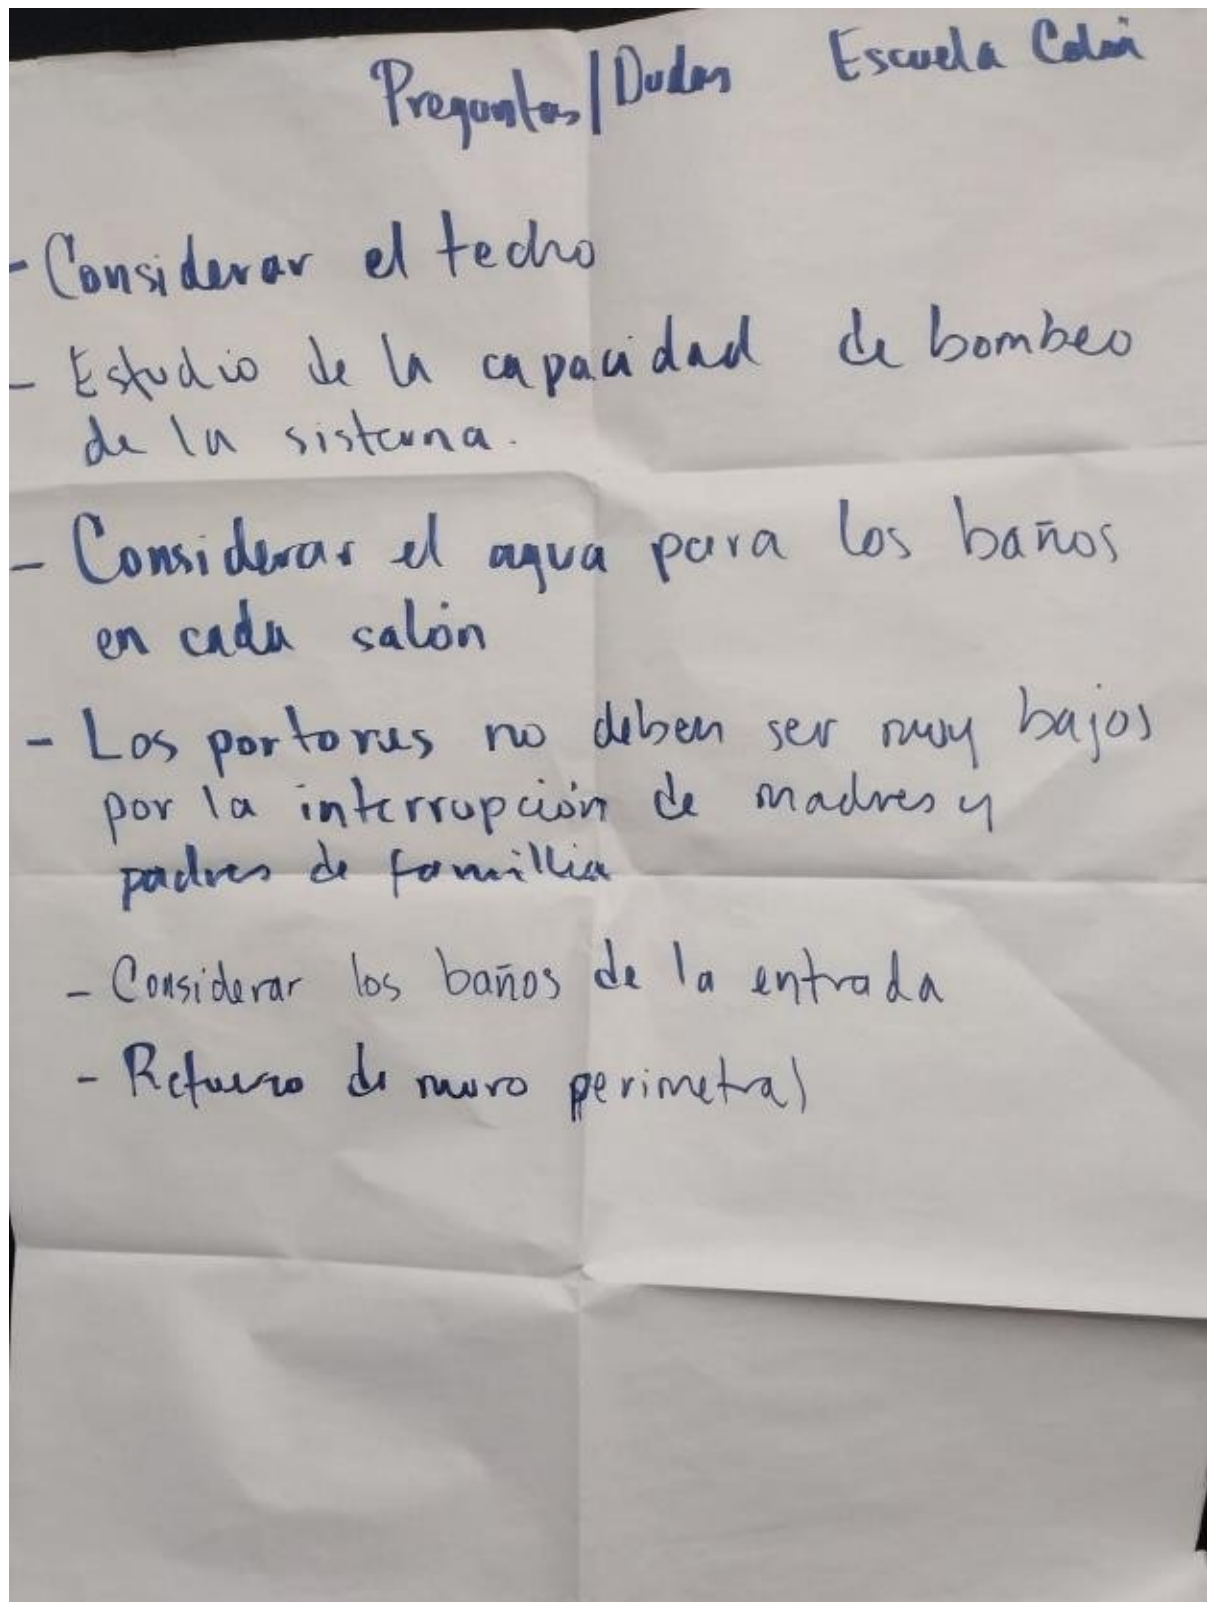 Preguntas/Dudas Escuela Colón
- Considerar el techo
- Estudio de la capacidad de bombeo
de la sisterna.
- Considerar el agua para los baños
en cada salón
- Los portones no deben ser muy bajos
por la interrupción de madres y
padres de famillia
- Considerar los baños de la entrada
- Refuerzo de muro perimetral